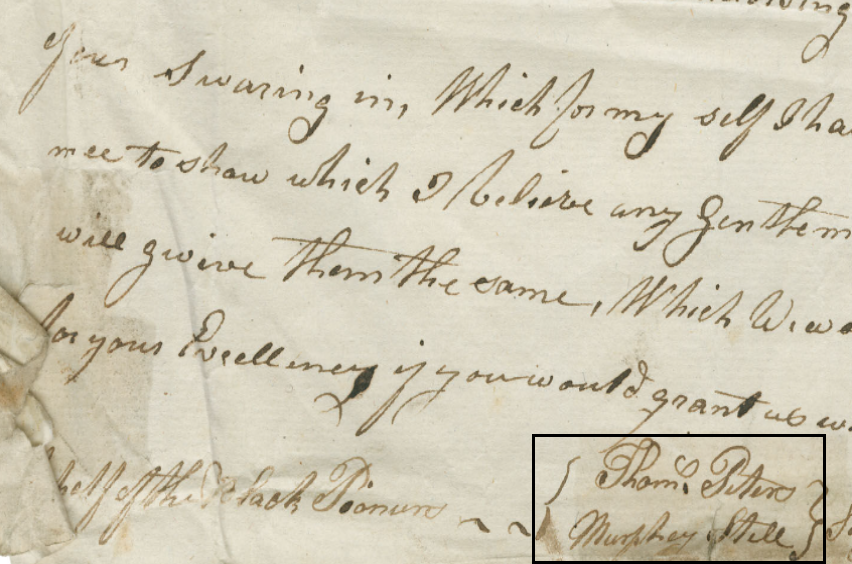 your Swaring in, Which for my self I ha
mee to show which I believe any Gentlem
will gwive them the same, Which We wo
for your Excellency if you would grant us w
half of the Black Pioneers
Thoms. Peters
Murphey Still